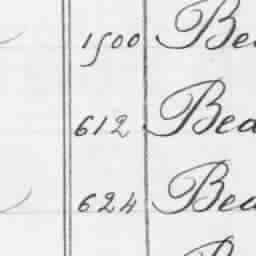 1500 Be
612 Bea
624 Bea
B